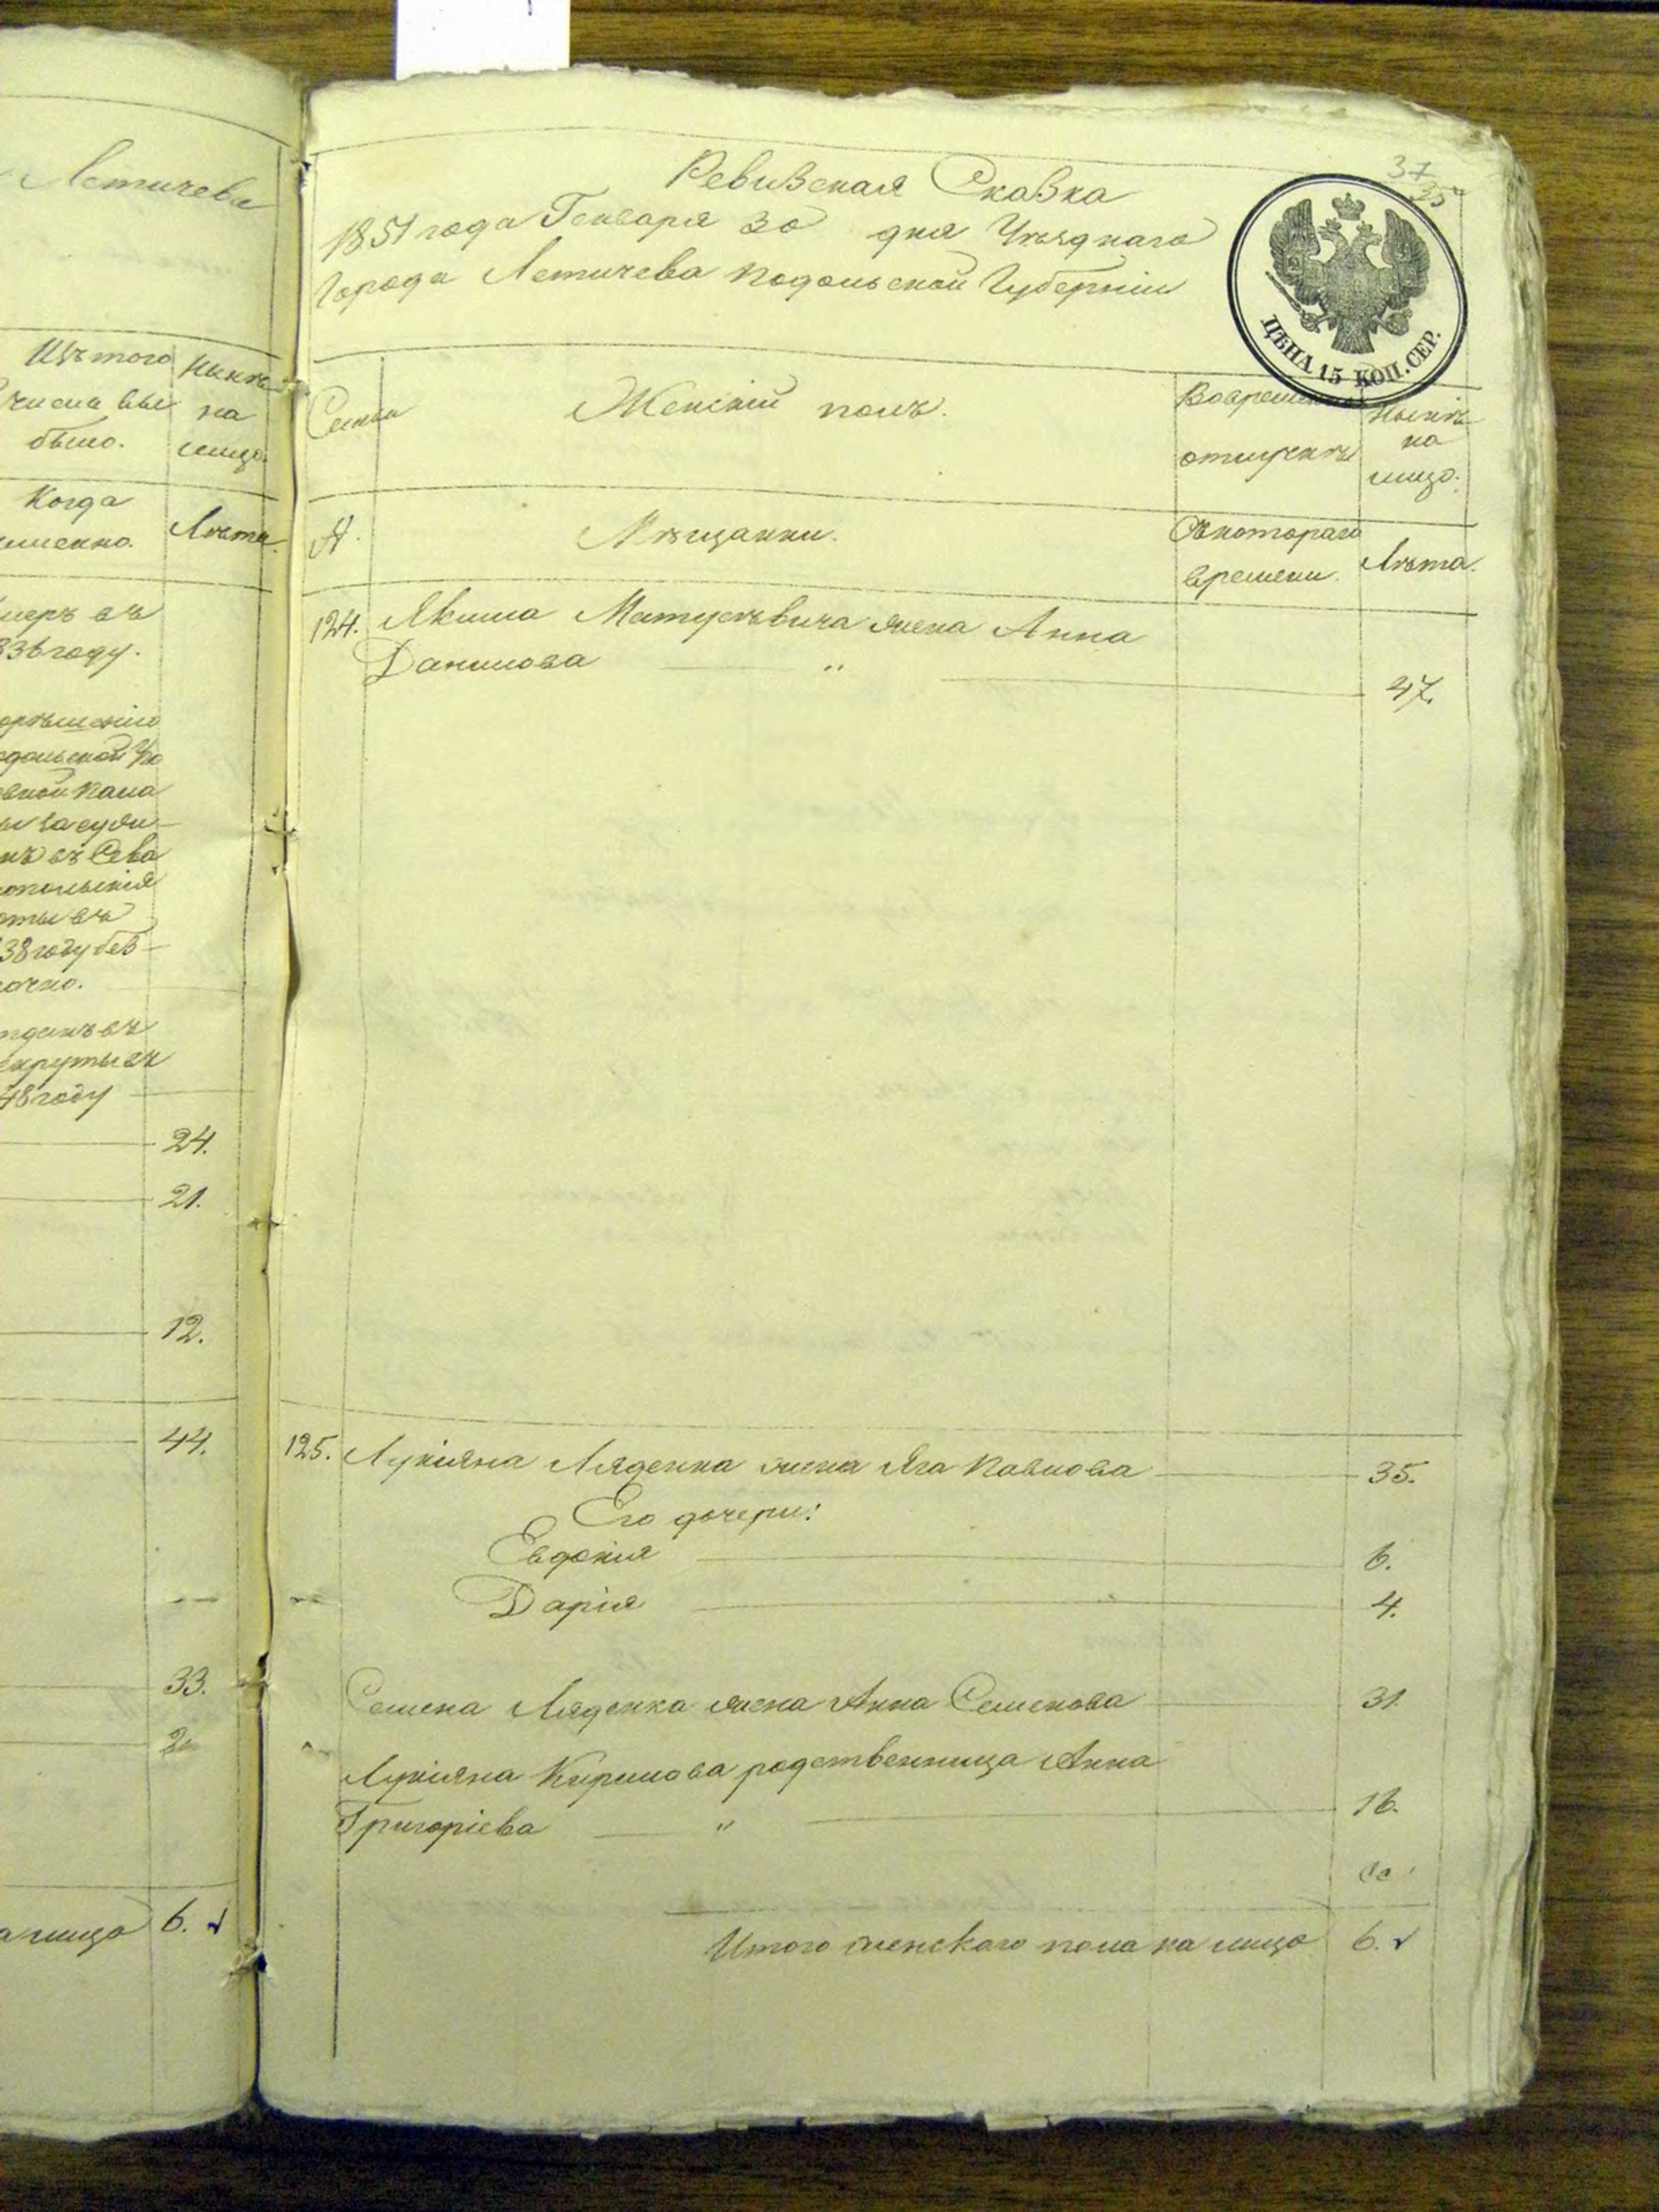 Летичева
Изъ того
числа вы
было.
Нынѣ
на
лицо.
Когда
именно.
Лѣта.
меръ въ
836 году.
одольской Уго
овной Пала
въ Сева
отопольскія
оты въ
38 году без
очно.
тданъ въ
екруты въ
48 году
24.
21.
12.
44.
33.
2
а лицо 6.
37
35
Ревизская Сказка
1851 года Генваря 30 дня Уѣзднаго
Города Летичева Подольской Губерніи
ЦѢНА 15 КОП. СЕР.
Семьи
Женскій полъ.
Во временной
отлучкѣ
Нынѣ
на
лицо.
№.
Мѣщанки.
Съ котораго
времени.
Лѣта.
124. Якима Матусѣвича жена Анна
Данилова „ 47.
125. Лукіяна Ляденка жена Яга Павлова 35.
Его дочери:
Евдокія 6.
Дарія 4.
Семена Ляденка жена Анна Семенова 31.
Лукіяна Кирилова родственница Анна
Григоріева „ 16.
Итого женскаго пола на лицо 6.